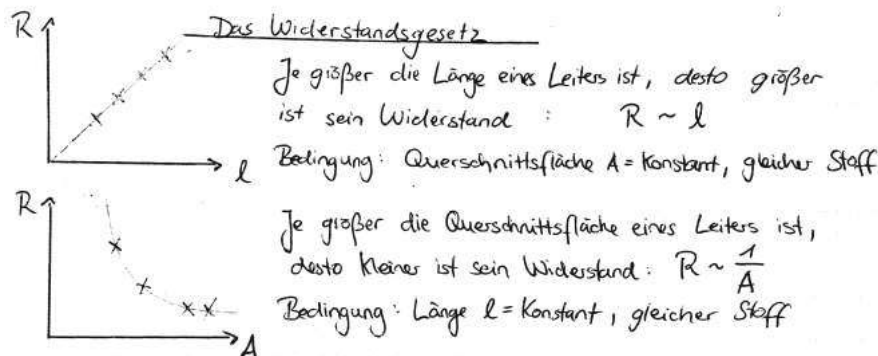 Das Widerstandsgesetz
R
Je größer die Länge eines Leiters ist, desto größer
ist sein Widerstand : R ~ l
Bedingung: Querschnittsfläche A = Konstant, gleicher Stoff
l
R
Je größer die Querschnittsfläche eines Leiters ist,
desto kleiner ist sein Widerstand: R ~ 1/A
Bedingung: Länge l = Konstant, gleicher Stoff
A